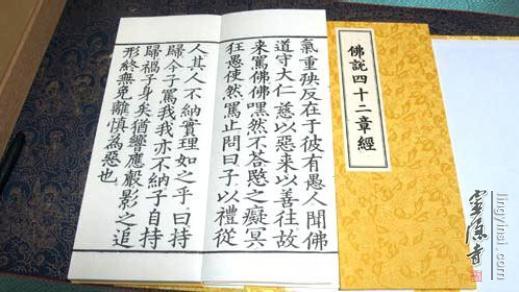 佛說四十二章經
氣重殃反在于彼有愚人聞佛
道守大仁慈以惡來以善往故
來罵佛佛嘿然不答愍之癡冥
狂愚使然罵止問曰子以禮從
人其人不納實理如之乎曰持
歸今子罵我我亦不納子自持
歸禍子身矣猶響應聲影之追
形終無免離慎為惡也
靈隱寺
lingyinsi.com